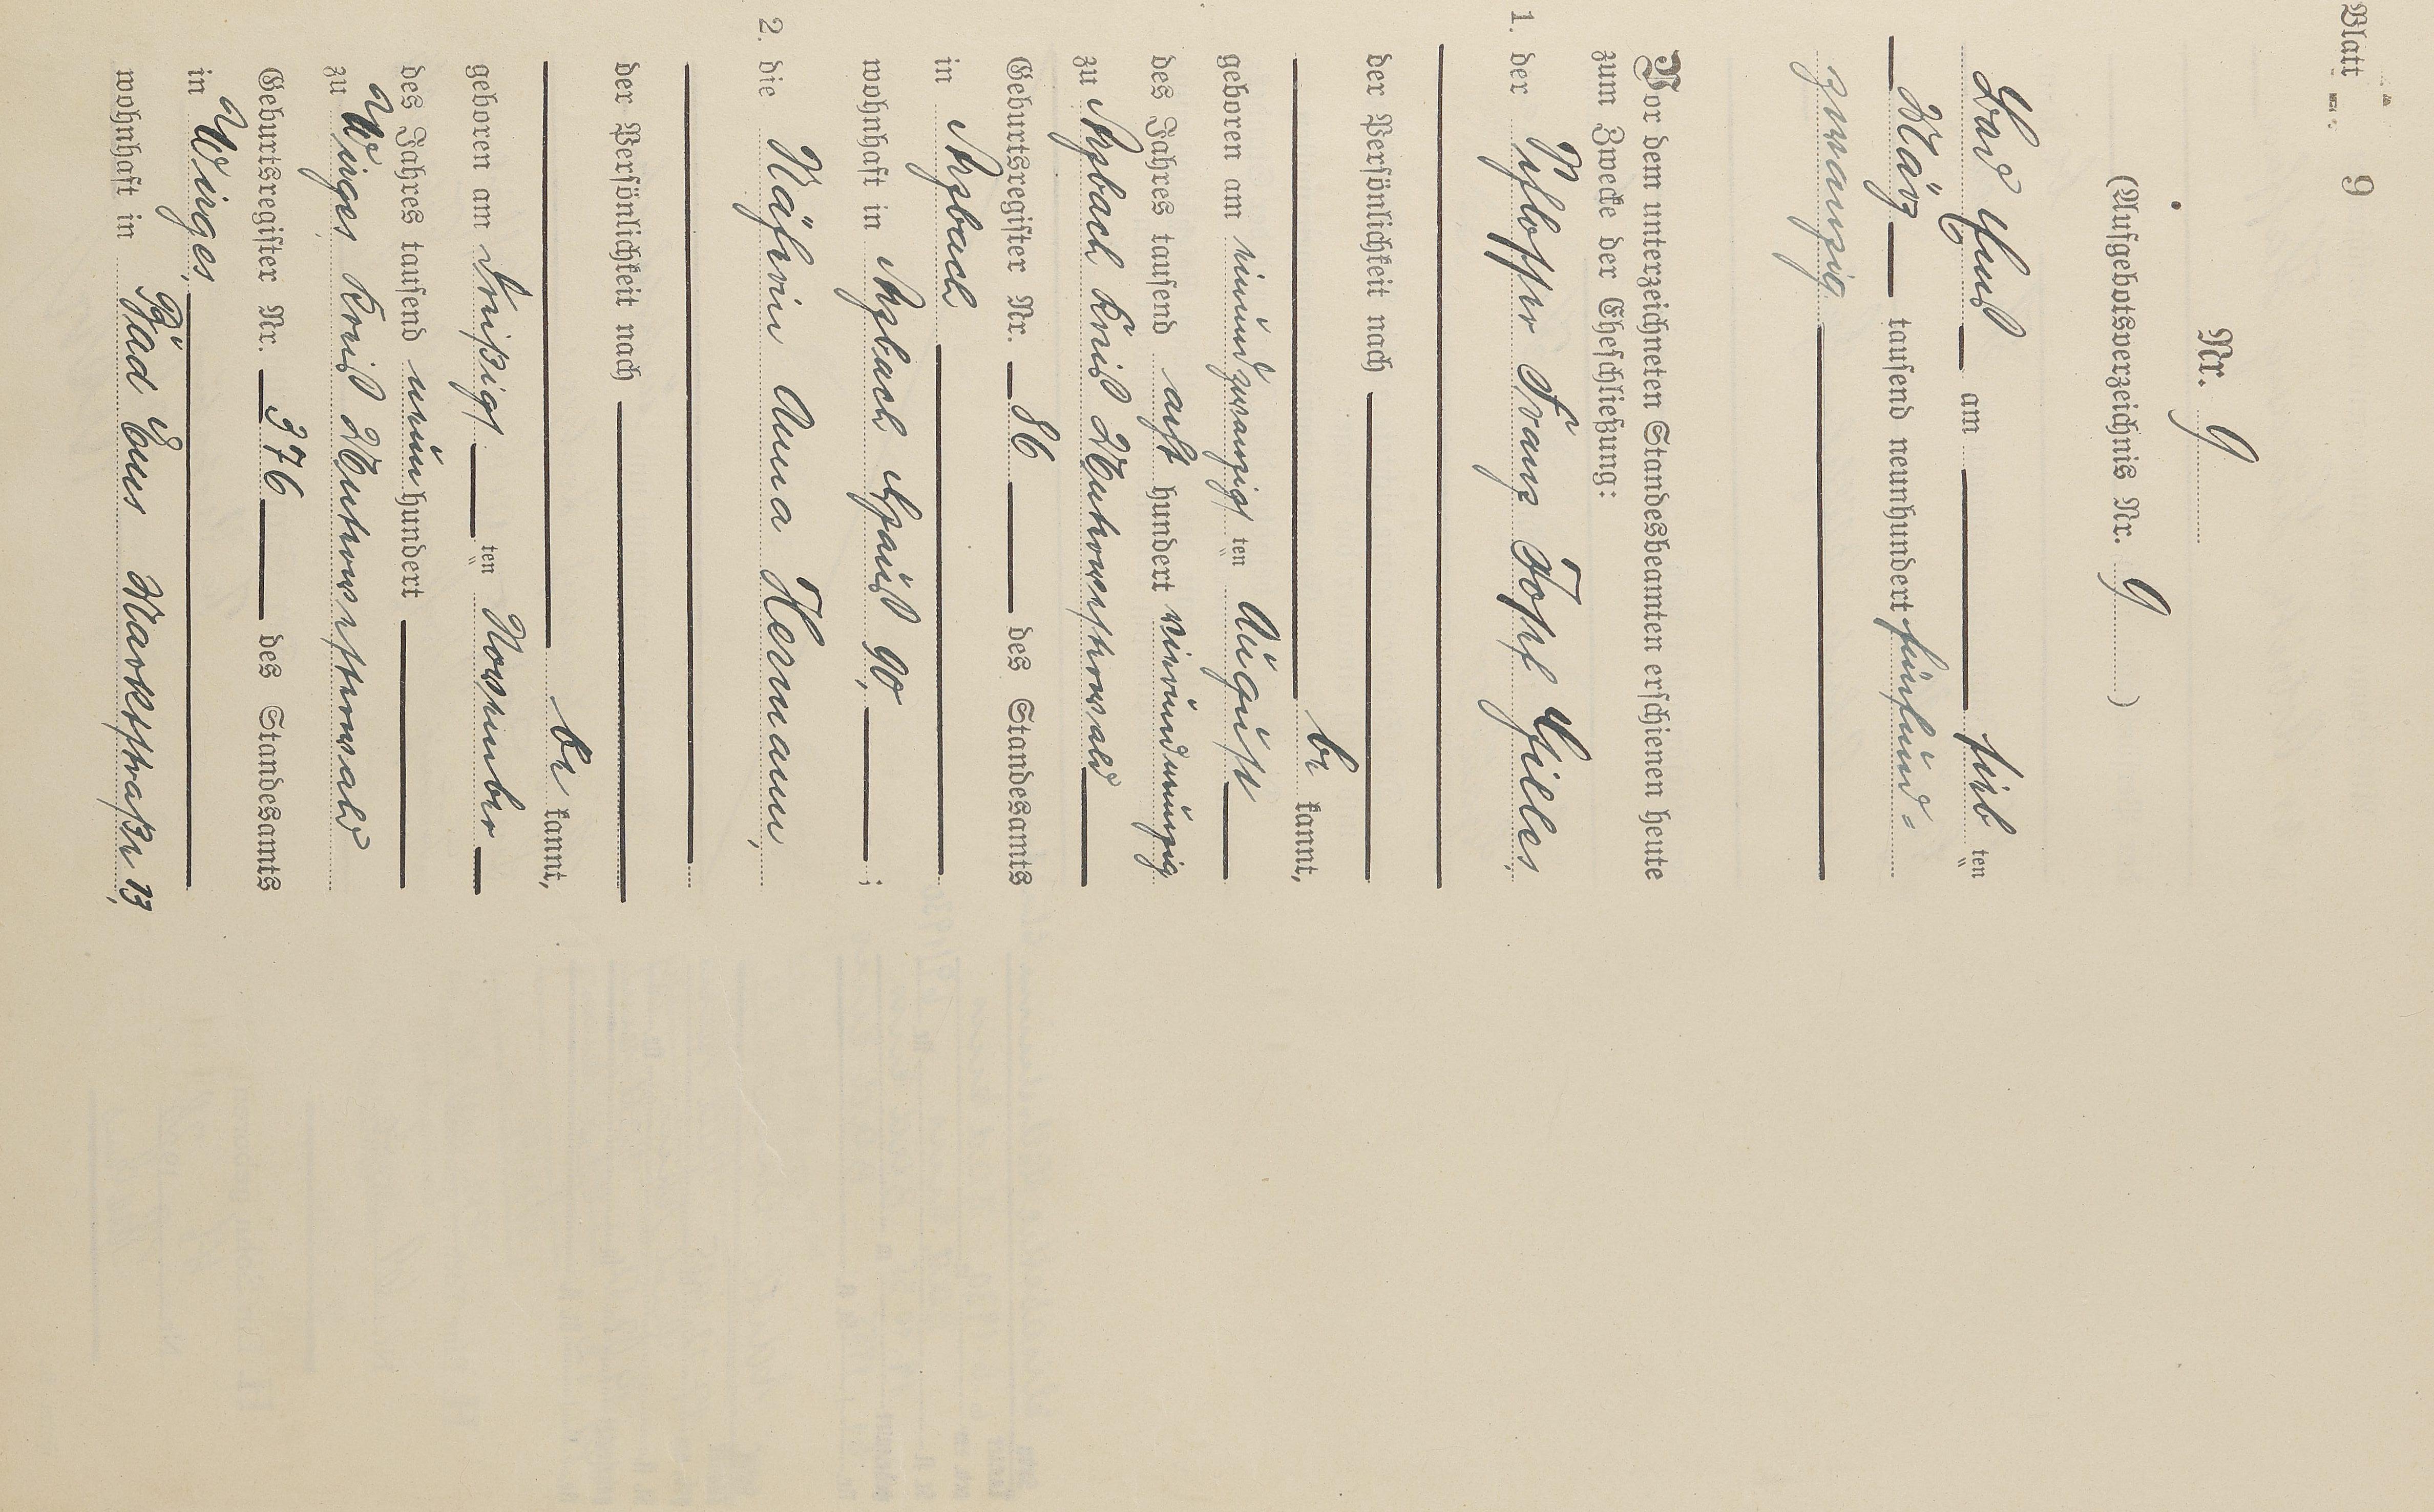 Blatt 9
Nr. 9
(Aufgebotsverzeichnis Nr. 9)
Bad Ems am sieb ten
März tausend neunhundert fünfund=
zwanzig
Vor dem unterzeichneten Standesbeamten erschienen heute
zum Zwecke der Eheschließung:
1. der Schlosser Franz Josef Gilles,
der Persönlichkeit nach
be kannt,
geboren am vierundzwanzigsten ten August
des Jahres tausend acht hundert vierundneunzig
zu Arzbach Kreis Unterwesterwald
Geburtsregister Nr. 86 des Standesamts
in Arzbach
wohnhaft in Arzbach Haus 90, ;
2. die Näherin Anna Hermann,
der Persönlichkeit nach
be kannt,
geboren am dreißigst ten November
des Jahres tausend neun hundert
zu Wirges, Kreis Unterwesterwald
Geburtsregister Nr. 376 des Standesamts
in Wirges,
wohnhaft in Bad Ems Marktstraße 13,